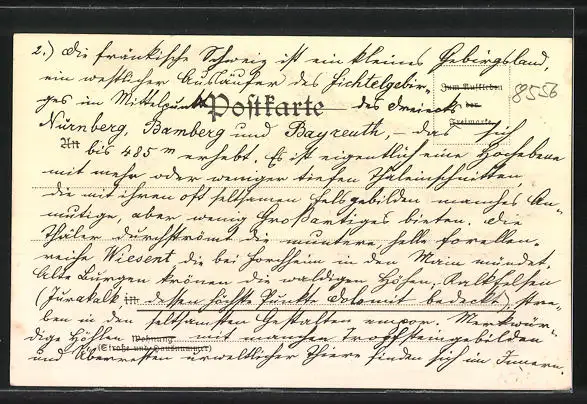 2.) Die fränkische Schweiz ist ein kleines Gebirgsland,
ein westlicher Ausläufer des Fichtelgebir-
Zum Aufkleben
der
Freimarke
8556
ges im Mittelpunkt Postkarte des Dreiecks
Nürnberg, Bamberg und Bayreuth, – das sich
An bis 485 m erhebt. Es ist eigentlich eine Hochebene
mit mehr oder weniger tiefen Thaleinschnitten,
die mit ihren oft seltsamen Felsgebilden manches An-
mutige, aber wenig Großartiges bieten. Die
Thäler durchströmt die muntere, helle forellen-
reiche Wiesent die bei Forchheim in den Main mündet.
Alte Burgen krönen die waldigen Höhen, Kalkfelsen
(Jurakalk in dessen höchste Punkte Dolomit bedeckt) stre-
ben in den seltsamsten Gestalten empor. Merkwür-
dige Höhlen Wohnung mit manchen Tropfsteingebilden
(Straße und Hausnummer)
und Überresten urweltlicher Thiere finden sich im Innern.